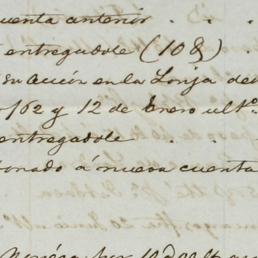 cuenta anterior . . .
entregadole (108) .
su acción en la Lonja de
102 y 12 de Enero ultº.
entregadole . .
onado á nueva cuenta